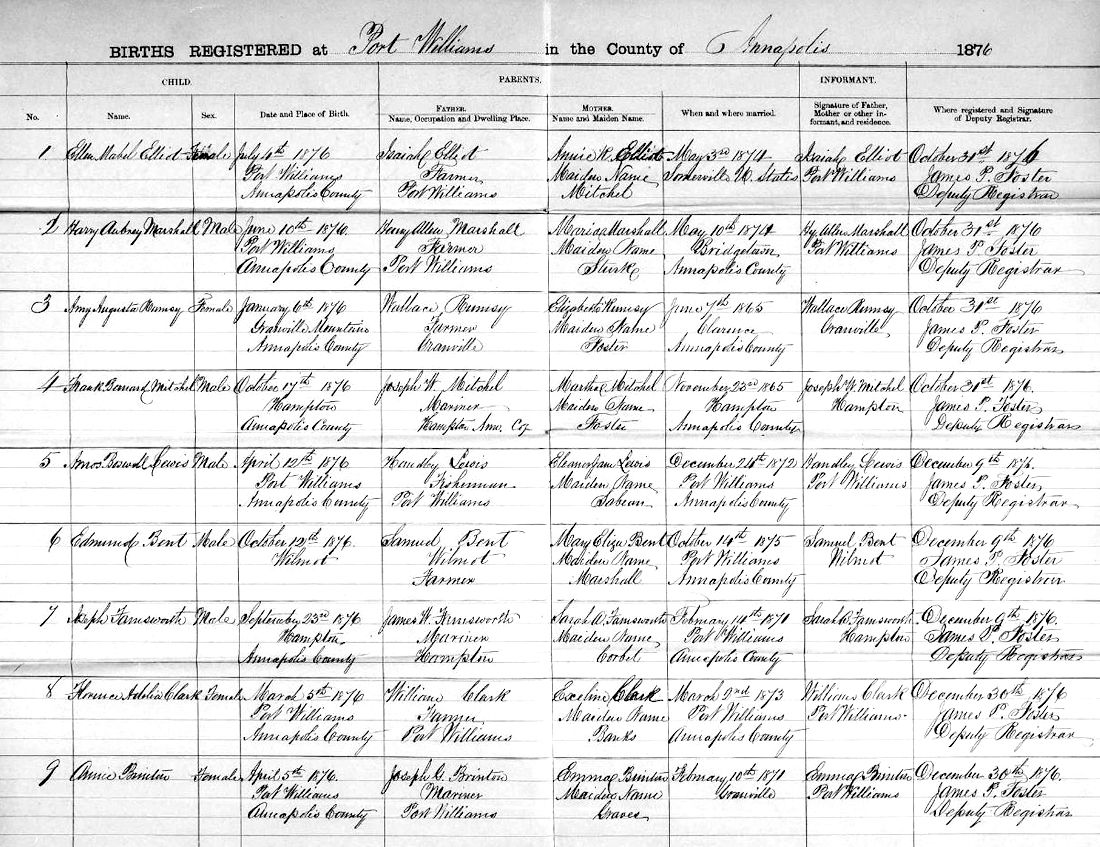 BIRTHS REGISTERED at Port Williams in the County of Annapolis 1876
CHILD. PARENTS. INFORMANT.
No. Name. Sex. Date and Place of Birth. FATHER. Name, Occupation and Dwelling Place. MOTHER. Name and Maiden Name. When and where married. Signature of Father, Mother or other informant, and residence. Where registered and Signature of Deputy Registrar.
1 Ellen Mabel Elliot Female July 4th 1876 Isaiah Elliot Annie R. Elliot May 3rd 1874 Isaiah Elliot October 31st 1876
Port Williams Farmer Maiden Name Somerville U. States Port Williams James P. Foster
Annapolis County Port Williams Mitchel Deputy Registrar
2 Harry Aubrey Marshall Male June 10th 1876 Harry Allen Marshall Maria Marshall May 10th 1874 Hy. Allen Marshall October 31st 1876
Port Williams Farmer Maiden Name Bridgetown Port Williams James P. Foster
Annapolis County Port Williams Annapolis County Deputy Registrar
3 Amy Augusta Rumsy Female January 6th 1876 Wallace Rumsy Elizabeth Rumsy June 7th 1865 Wallace Rumsy October 31st 1876
Granville Mountain Farmer Maiden Name Clarence Granville James P. Foster
Annapolis County Granville Foster Annapolis County Deputy Registrar
4 Frank Mitchel Male October 17th 1876 Joseph W. Mitchel Martha Mitchel November 23rd 1865 Joseph W. Mitchel October 31st 1876.
Hampton Mariner Maiden Name Hampton Hampton James P. Foster
Annapolis County Hampton Ann. Co. Foster Annapolis County Deputy Registrar
5 Amos Boswell Lewis Male April 12th 1876 Handley Lewis Eleanor Jane Lewis December 24th 1872 Handley Lewis December 9th 1876.
Port Williams Fisherman Maiden Name Port Williams Port Williams James P. Foster
Annapolis County Port Williams Sabean Annapolis County Deputy Registrar
6 Edmund Bent Male October 12th 1876. Samuel Bent Mary Eliza Bent October 14th 1875 Samuel Bent December 9th 1876
Wilmot Wilmot Maiden Name Port Williams Wilmot James P. Foster
Farmer Marshall Annapolis County Deputy Registrar
7 Joseph Farnsworth Male September 23rd 1876 James W. Farnsworth Sarah A. Farnsworth February 14th 1871 Sarah A. Farnsworth December 9th 1876.
Hampton Mariner Maiden Name Port Williams Hampton James P. Foster
Annapolis County Hampton Corbet Annapolis County Deputy Registrar
8 Florence Adelia Clark Female March 5th 1876 William Clark Exeline Clark March 2nd 1873 William Clark December 30th 1876
Port Williams Farmer Maiden Name Port Williams Port Williams James P. Foster
Annapolis County Port Williams Banks Annapolis County Deputy Registrar
9 Annie Brinton Female April 5th 1876. Joseph G. Brinton Emma Brinton February 10th 1871 Emma Brinton December 30th 1876.
Port Williams Mariner Maiden Name Granville Port Williams James P. Foster
Annapolis County Port Williams Graves Deputy Registrar